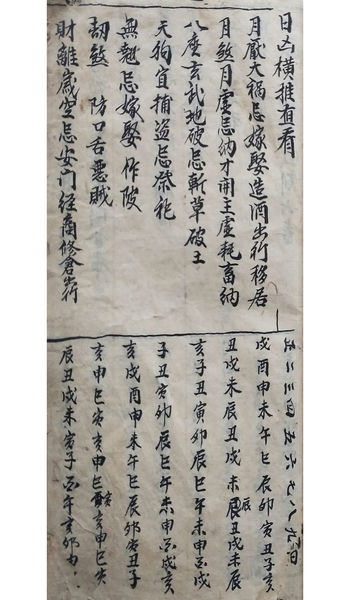 日凶橫推直看
月厭大禍忌嫁娶造酒出行移居
月煞月虛忌納才開主虛耗畜納
八座玄武地破忌斬草破土
天狗宜捕盜忌祭祀
無翹忌嫁娶作陂
劫煞 防口舌惡賊
財離歲空忌安門經商修倉出行
正二三四五六七八九
戌酉申未午巳辰卯寅丑子亥
丑戌未辰丑戌未辰丑戌未辰
亥子丑寅卯辰巳午未申酉戌
子丑寅卯辰巳午未申酉戌亥
亥戌酉申未午巳辰卯寅丑子
亥申巳寅亥申巳寅亥申巳亥
辰丑戌未寅子酉午亥卯